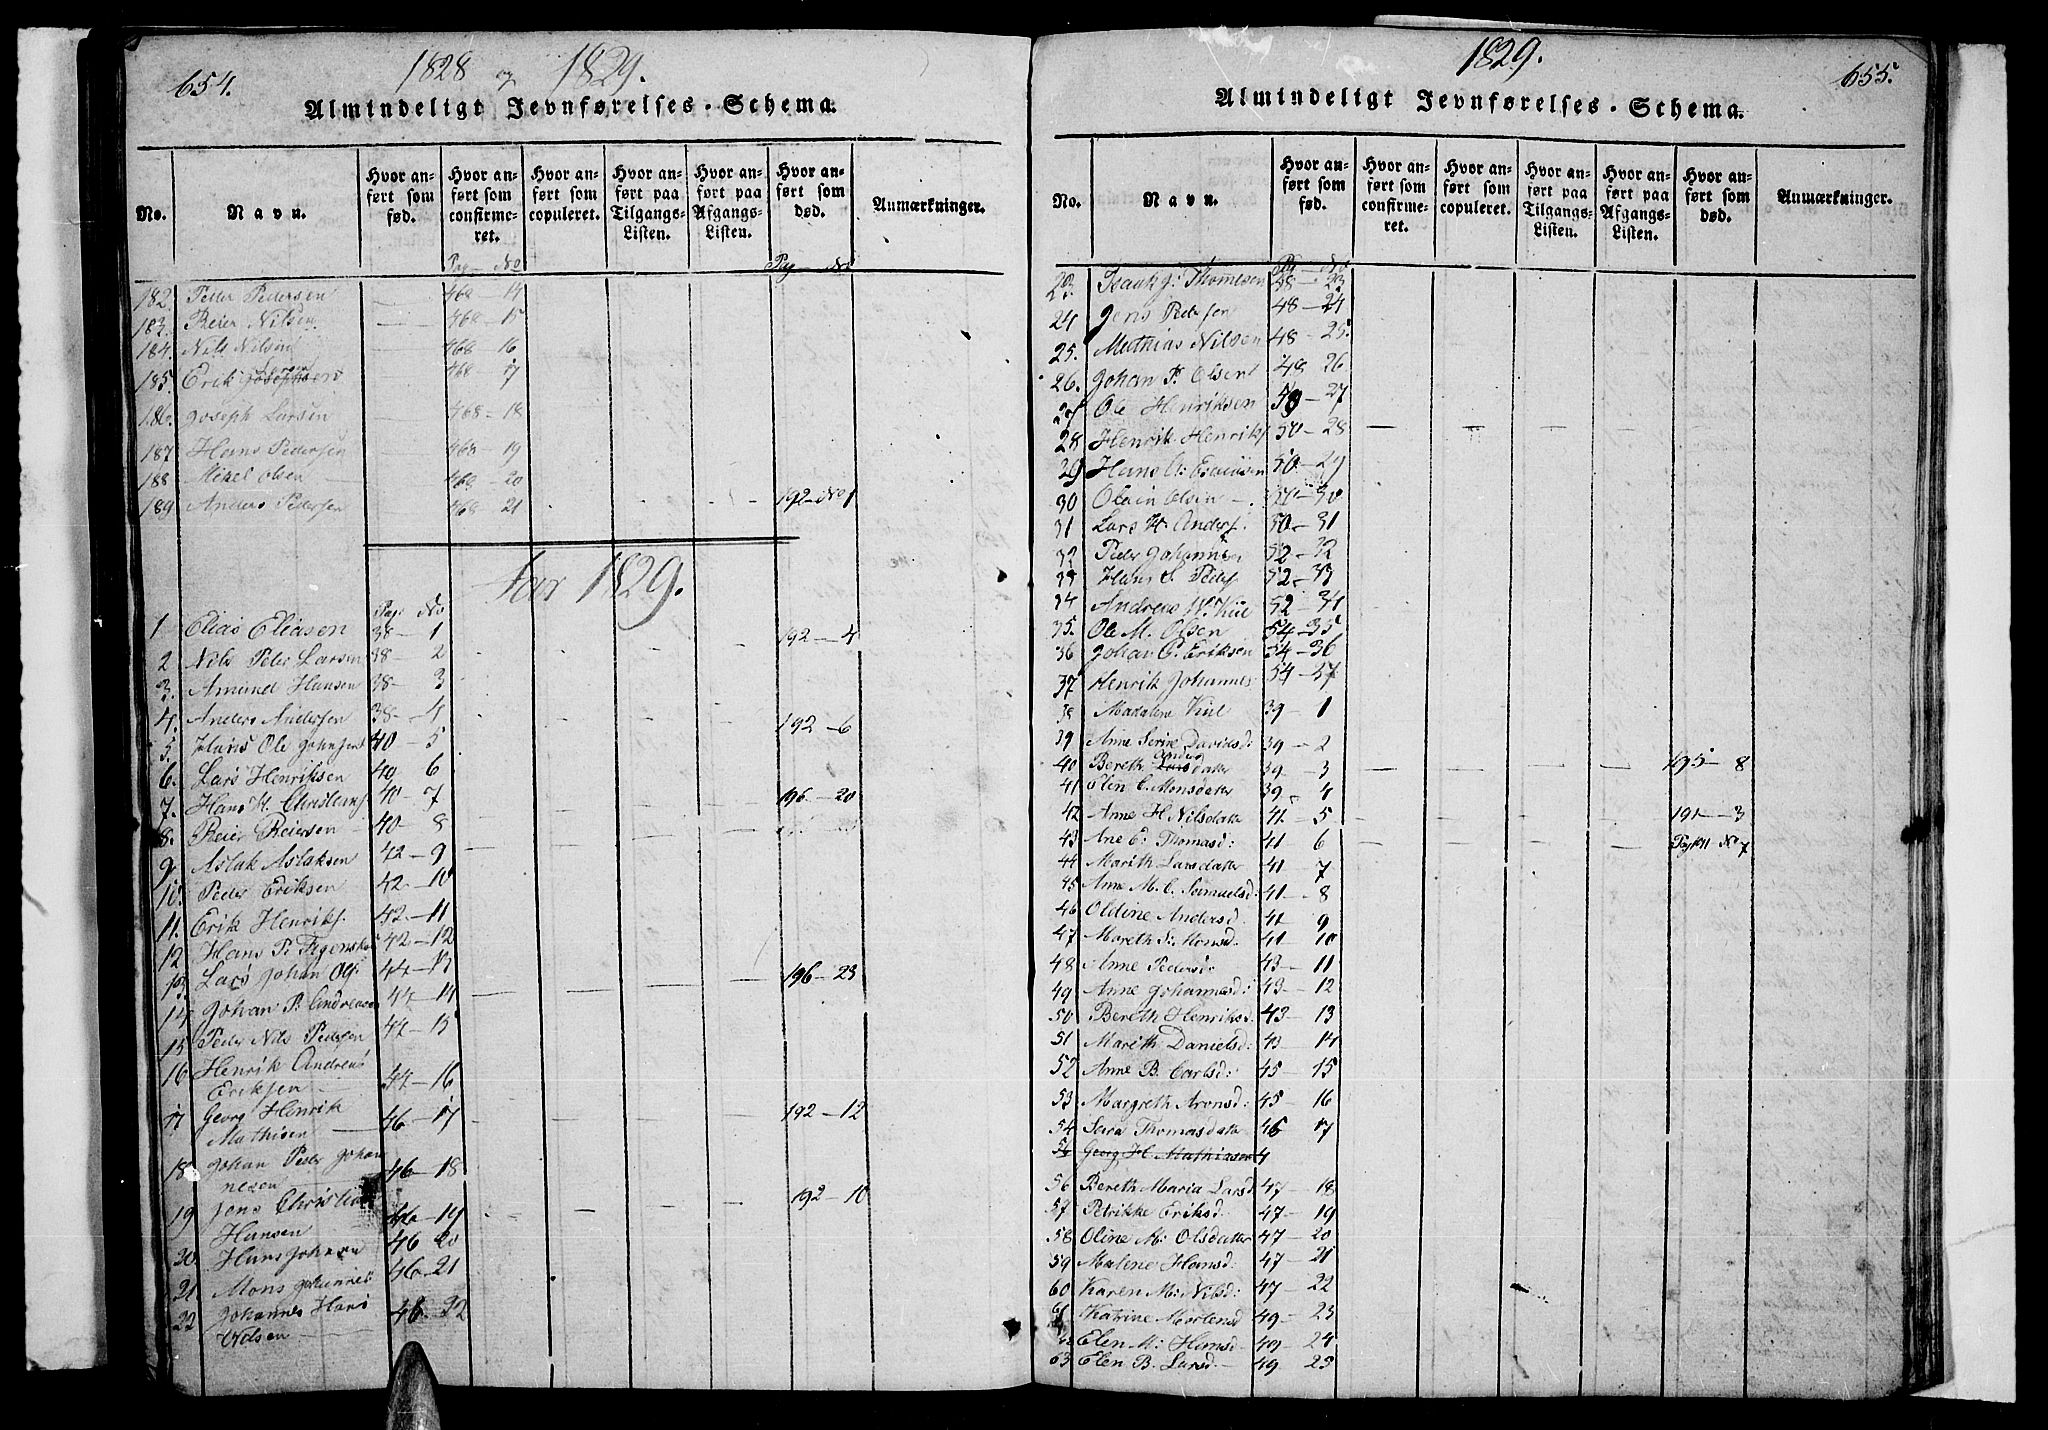 654.
1828 og 1829.
Almindeligt Jevnførelses-Schema.
No.
Navn.
Hvor anført som fød.
Hvor anført som confirmeret.
Hvor anført som copuleret.
Hvor anført paa Tilgangs-Listen.
Hvor anført paa Afgangs-Listen.
Hvor anført som død.
Anmærkninger.
Pag No Pag No
182 Peder Pedersen 468 - 14
183. Reier Nilsen 468 - 15
184. Nils Nilsen 468 - 16
185. Erik Josephsen Larsen 468 17
186. Joseph Larsen 468 - 18
187 Hans Pedersen 468 - 19
188 Mikel Olsen 468 - 20
189 Anders Pedersen 468 21 192 - No 1
Aar 1829.
Pag No
1 Elias Eliasen 38 - 1 192 - 4
2 Nils Peder Larsen 38 - 2
3. Amund Hansen 38 - 3
4. Anders Andersen 38 - 4 192 - 6
5. Hans Ole Johnsen 40 - 5
6. Lars Henriksen 40 - 6
7. Hans H. Christians 40 - 7 196 - 20
8. Reier Reiersen 40 - 8
9. Aslak Aslaksen 42 - 9
10. Peder Eriksen 42 - 10
11. Erik Henriks. 42 - 11
12 Hans P. 42 - 12
13. Lars Johan Ols. 44 - 13 196 - 23
14 Johan P. Andreasen 44 - 14
15 Peder Nils Pedersen 44 - 15
16 Henrik Andreas
Eriksen 44 - 16
17 Georg Henrik
Mathisen 46 - 17 192 - 12
18 Johan Peder Johan
nesen 46 - 18
19 Jens Christian
Hansen 46 - 19 192 - 10
20. Hans Johnsen 46 20
21. Mons Johannes 46 - 21
22 Johannes Hans
Olsen 48 - 22
1829.
655.
Almindeligt Jevnførelses-Schema.
No.
Navn.
Hvor anført som fød.
Hvor anført som confirmeret.
Hvor anført som copuleret.
Hvor anført paa Tilgangs-Listen.
Hvor anført paa Afgangs-Listen.
Hvor anført som død.
Anmærkninger.
Pg - No
23. Isaak J: Thomesen 48 - 23
24 Jens Pedersen 48 - 24
25. Mathias Nilsen 48 - 25.
26. Johan P. Olsen 48 26
27 Ole Henriksen 50 - 27
28 Henrik Henriks 50 - 28
29 Hans A: 50 - 29
30 Olsen 50 - 30
31 Lars H. Anders. 50 - 31
32 Peder Johannes 52 - 32
33 Hans S. Peders 52 - 33
34 Andreas W. Kiil 52 - 34
35. Ole M. Olsen 54 - 35
36 Johan C. Eriksen 54 - 36
37 Henrik Johannes 54 - 37
38 Madalene Kiil 39 - 1
39 Anne Serine Daviksd: 39 - 2
40 Bereth Larsdatter Anders 39 - 3 195 - 8
41 Elen C. Monsdatter 39 - 4
42 Anne H. Nilsdatter 41 - 5 191 - 3
43 Ane E. Thomasd: 41 6 No 7
44 Mareth Larsdatter 41 - 7
45 Anne M. C. Samuelsd: 41 - 8
46 Oldine Andersd 41 9
47 Mareth S: Monsd. 41 - 10
48 Anne Pedersd. 43 - 11
49 Anne Johannesd: 43 - 12
50 Bereth Henriksd. 43 - 13
51 Mareth Danielsd: 43 14
52 Anne B. Carlsd: 45 - 15
53 Margreth Aronsd: 45 - 16
54 Sara Thomasdatter 45 17
Georg H. Mathisen 4
56 Bereth Maria Larsd 47 - 18
57 Petrikke Eriksd: 47 - 19
58 Oline M: Olsdatter 47 - 20
59 Malene Hansd: 47 - 21
60 Karen M: Nilsd: 47 - 22
61 Katrine Mortensd 49 - 23
62 Elen M: Hansd: 49 - 24
63 Elen B. Larsd. 49 25